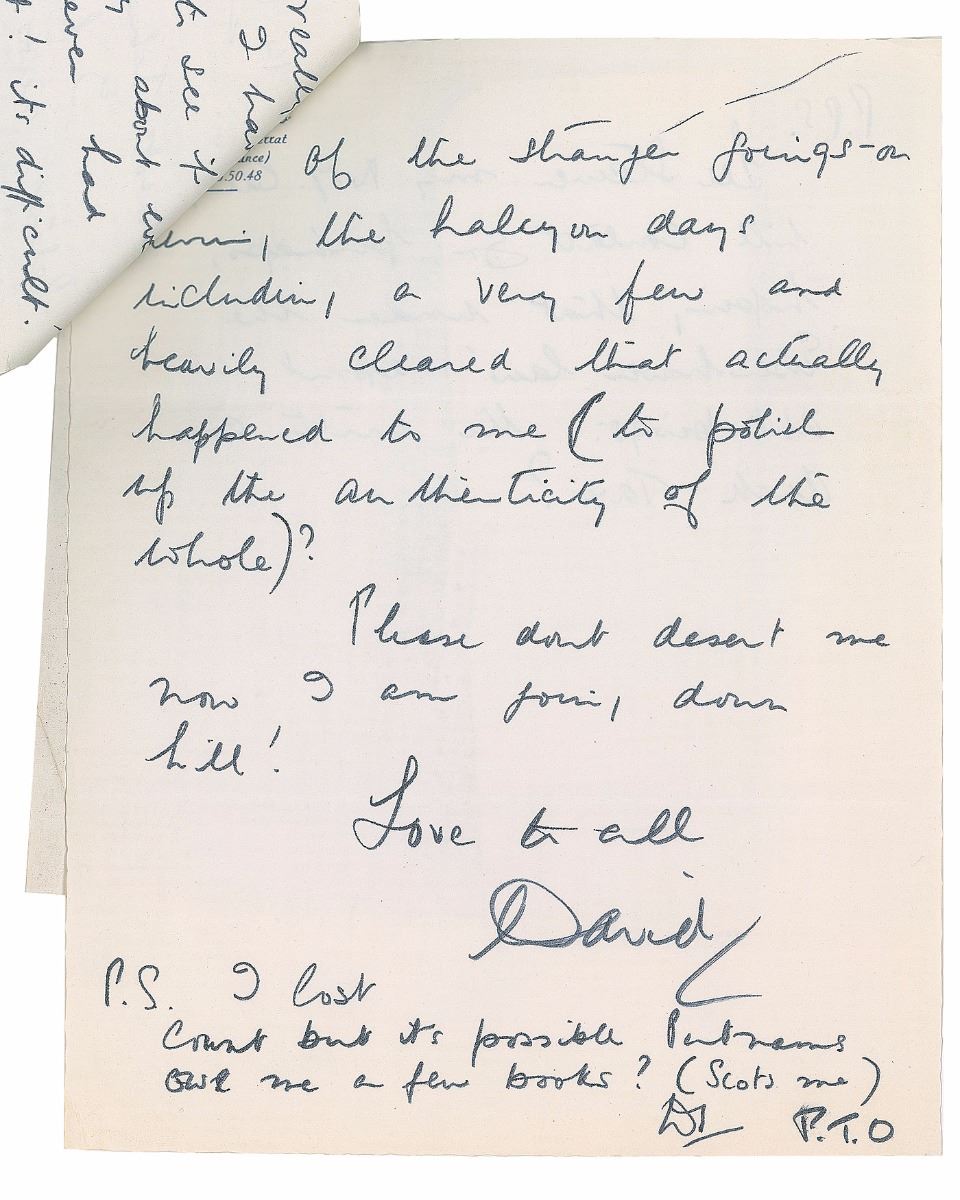 really
I ha
to see it
about
ever had
! it's difficult.
ttat
ance)
.50.48
of the stranger goings-on
, the halcyon days
including a very few and
heavily cleared that actually
happened to me (to polish
up the authenticity of the
whole)?
Please dont desert me
now I am going down
hill!
Love to all
David
P.S. I lost
count but its possible Putnams
owe me a few books? (Scots me)
P.T.O